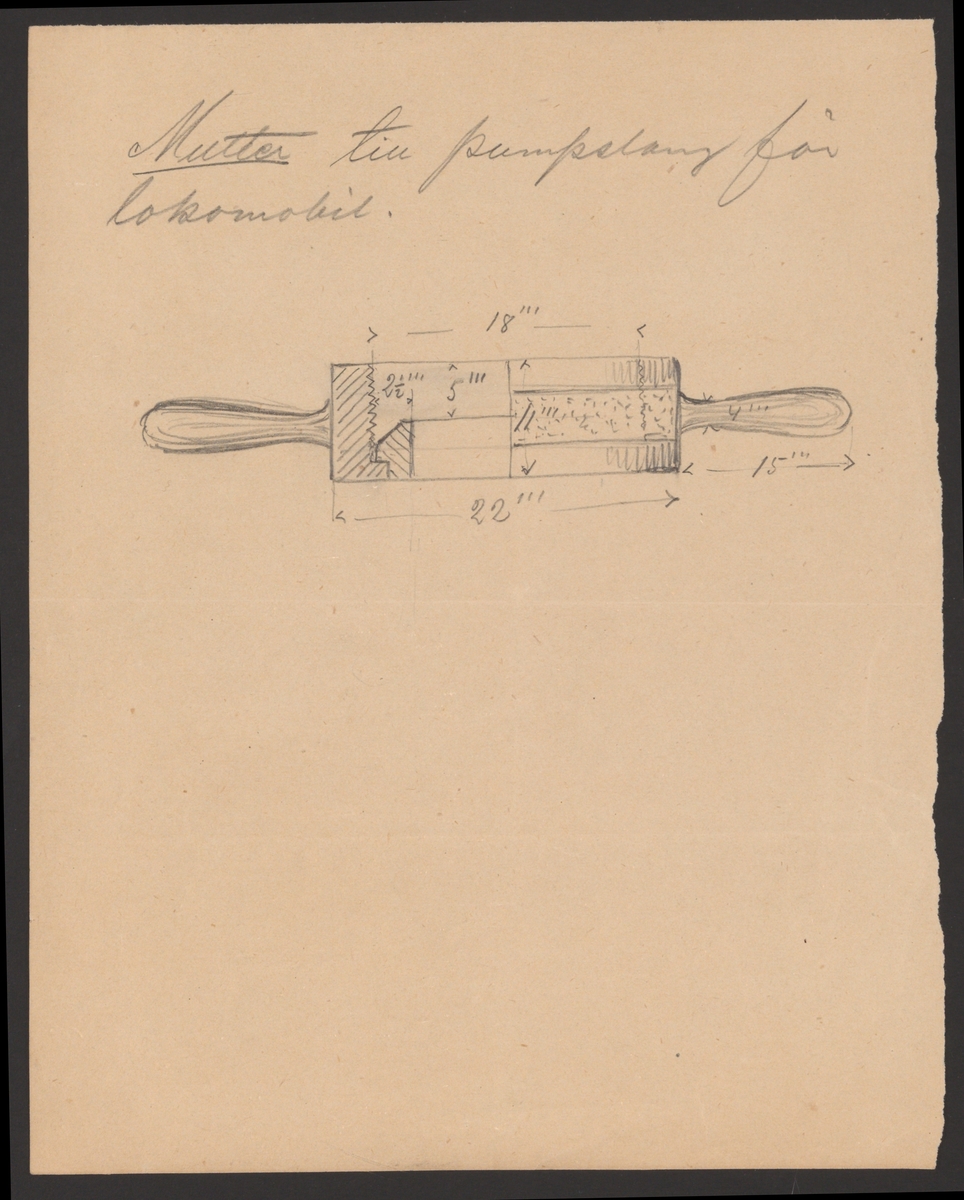 Mutter till pumpslang för
lokomobil.
18'''
2½''' 5'''
11''' 4'''
15'''
22'''